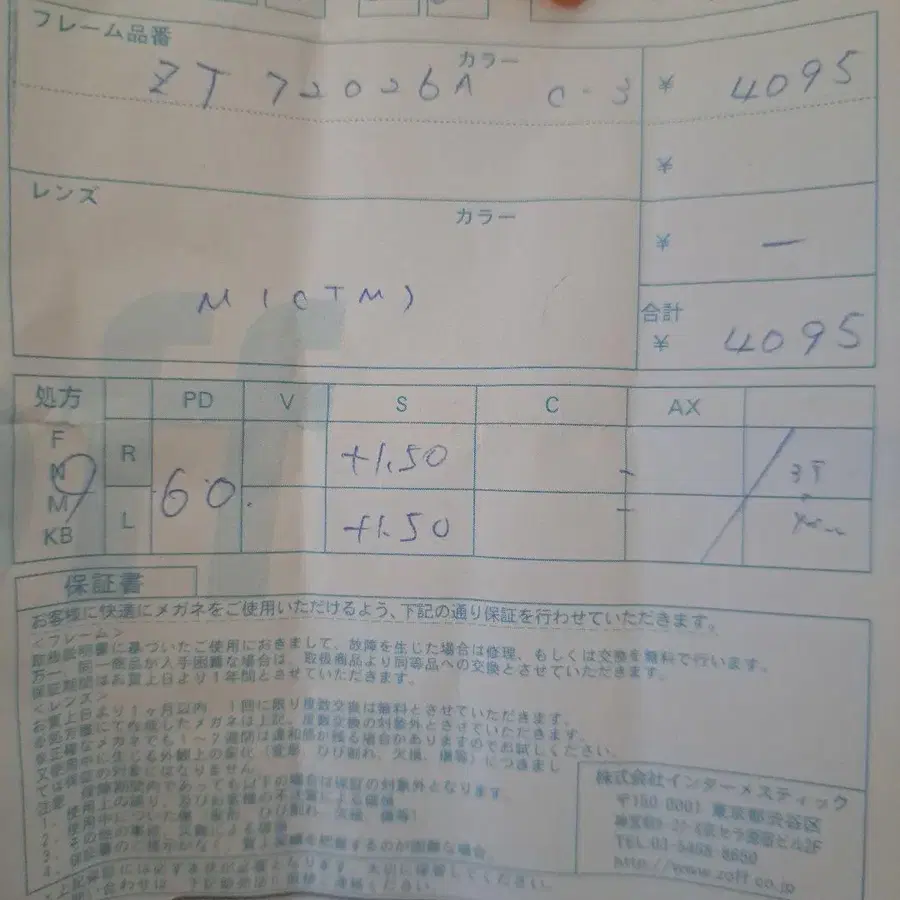 フレーム品番
カラー
ZT 72026A C-3
¥ 4095
¥
レンズ
カラー
¥ —
M(CTM)
合計
¥ 4095
処方 PD V S C AX
F
N
M
KB
R +1.50
60.
L +1.50
保証書
お客様に快適にメガネをご使用いただけるよう、下記の通り保証を行わせていただきます。
<フレーム>
取扱説明書に基づいたご使用におきまして、故障を生じた場合は修理、もしくは交換を無料で行います。
万一、同一商品が入手困難な場合は、取扱商品より同等品への交換とさせていただきます。
保証期間はお買上日より1年間とさせていただきます。
<レンズ>
お買上日より1ヶ月以内 1回に限り度数交換は無料とさせていただきます。
処方箋にて作成したメガネは上記、度数交換の対象外とさせていただきます。
正確なメガネでも1~2週間は違和感が残る場合がありますのでお試しください。
又使用中に生じる外観上の変化(変形、ひび割れ、欠損、傷等)につきまし
ては保証の対象にはなりません。
注意 保障期間内であっても以下の場合は保証の対象外となります。
1.使用上の誤り、及びお客様の不注意による破損
2.使用中についた傷
3.その他の事故、災害による破損
株式会社インターメスティック
〒150-0001 東京都渋谷区
TEL 03-5468-8650
http://www.zoff.co.jp